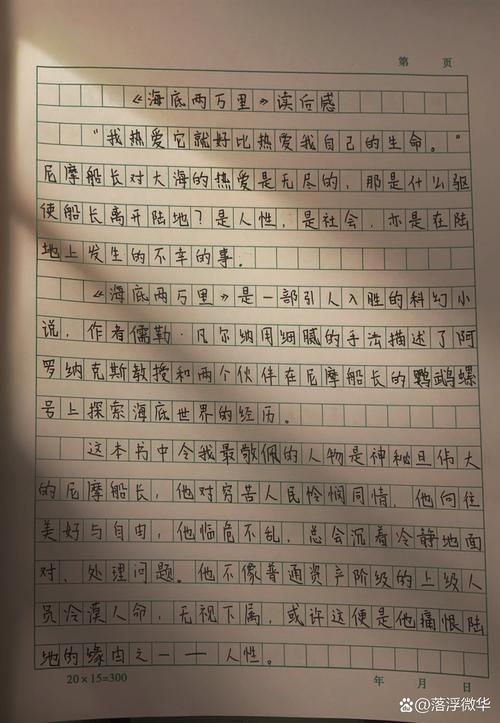 第 页
《海底两万里》读后感
“我热爱它就好比热爱我自己的生命。”
尼摩船长对大海的热爱是无尽的，那是什么驱
使船长离开陆地？是人性，是社会，亦是在陆
地上发生的不幸的事。
《海底两万里》是一部引人入胜的科幻小
说，作者儒勒·凡尔纳用细腻的手法描述了阿
罗纳克斯教授和两个伙伴在尼摩船长的鹦鹉螺
号上探索海底世界的经历。
这本书中令我最敬佩的人物是神秘且伟大
的尼摩船长，他对穷苦人民怜悯同情，他向往
美好与自由，他临危不乱，总会沉着冷静地面
对、处理问题。他不像普通资产阶级的上级人
员冷漠人命，无视下属，或许这便是他痛恨陆
地的缘由之一——人性。
20×15=300 年 月 日
@落浮微华